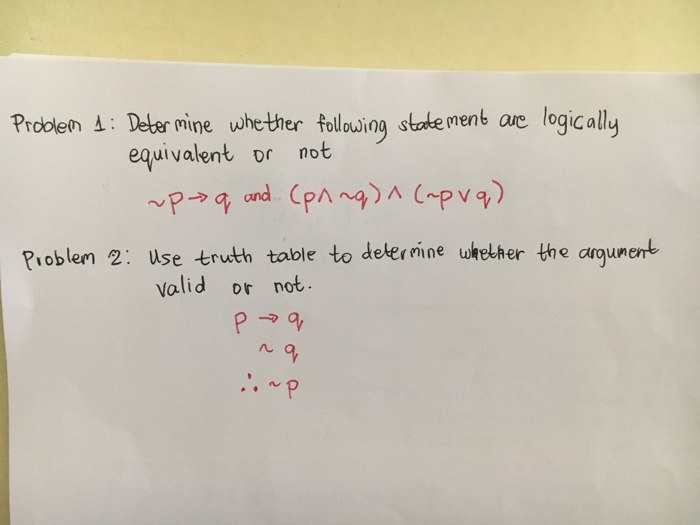 Problem 1: Determine whether following statement are logically
equivalent or not
~p→q and (p∧~q)∧(~p∨q)
Problem 2: Use truth table to determine whether the argument
valid or not.
p→q
~q
∴~p